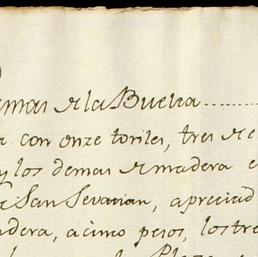 emas de la Buelta..........
con onze toriles, tres de
y los demas de madera e
San Sevastian, apreciad
adera, a cinco pesos, los tre